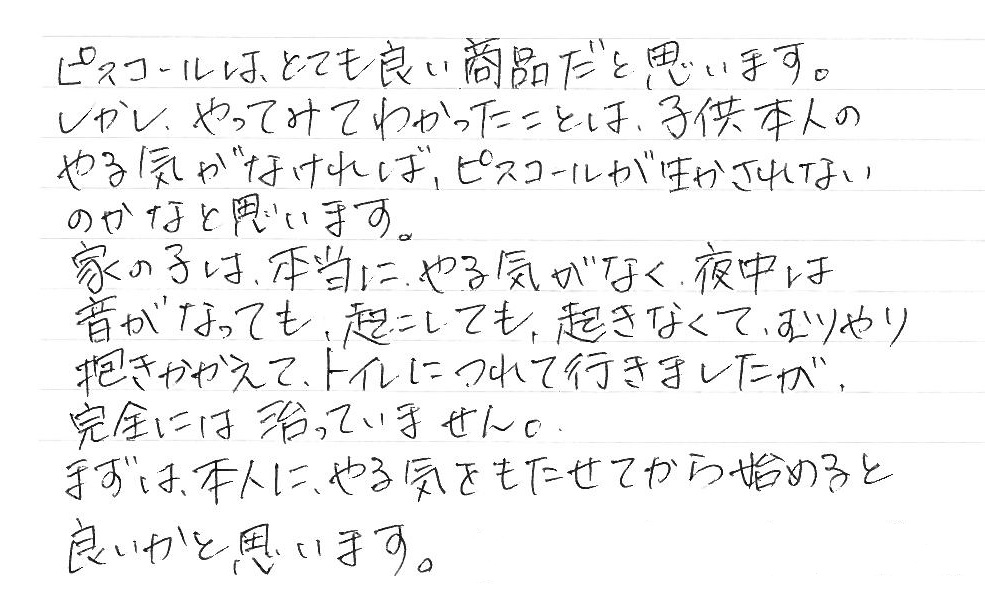 ピスコールは、とても良い商品だと思います。
しかし、やってみてわかったことは、子供本人の
やる気がなければ、ピスコールが生かされない
のかなと思います。
家の子は、本当に、やる気がなく、夜中は
音がなっても、起こしても、起きなくて、むりやり
抱きかかえて、トイレにつれて行きましたが、
完全には治っていません。
まずは、本人に、やる気をもたせてから始めると
良いかと思います。